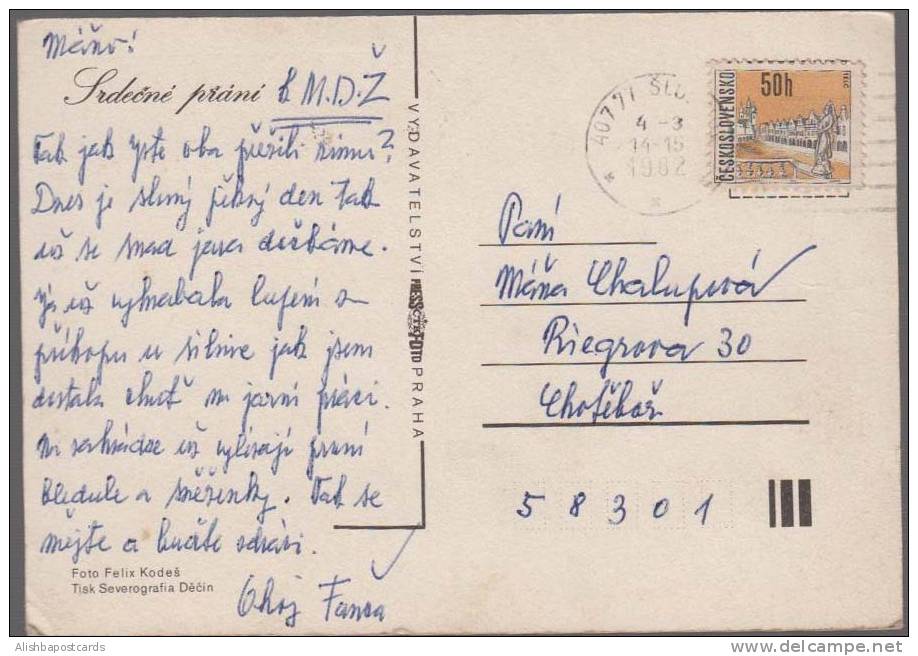 Máňo!
Srdečné přání k M.D.Ž
Tak jak jste oba přežili zimu?
Dnes je slunný pěkný den tak
už se snad jara dočkáme.
Já už vyhrabala lupení z
příkopu u silnice jak jsem
dostala chuť na jarní práci.
Na zahrádce už vylézají první
bledule a sněženky. Tak se
mějte a buďte zdrávi.
Ahoj
Foto Felix Kodeš
Tisk Severografia Děčín
VYDAVATELSTVÍ PRESSFOTO PRAHA
40777
4 -3
14-15
1982
ČESKOSLOVENSKO
50h
TELČ
Paní
Máňa Chalupová
Riegrova 30
Chotěboř
58301
Alishbapostcards